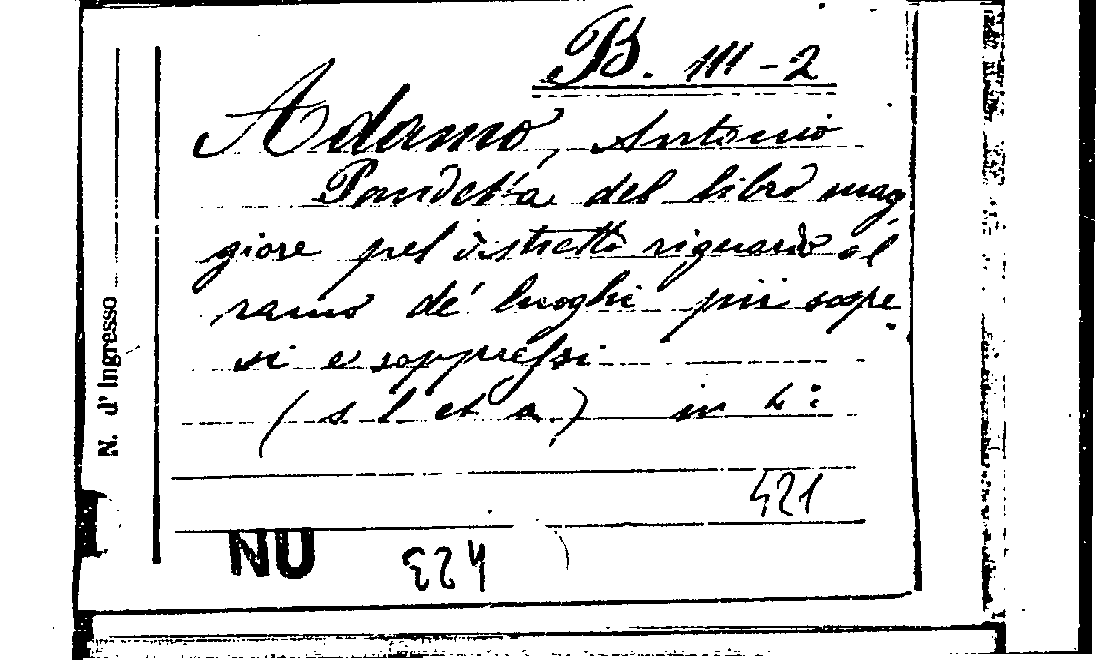 B. III-2
Adamo, Antonio
Pandetta del libro mag
giore pel distretto riguardo al
ramo de' luoghi pii sospe
si e soppressi
(s. l. et a.) in 4°:
421
NU
N. d' Ingresso